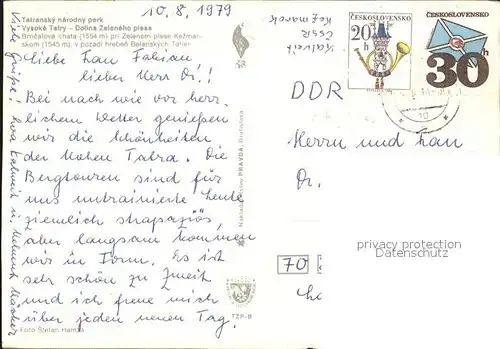 10.8.1979
Tatranský národný park
Vysoké Tatry – Dolina Zeleného plesa
Brnčalova chata (1554 m) pri Zelenom plese Kežmar-
skom (1545 m), v pozadí hrebeň Belanských Tatier
Liebe Frau Fabian,
lieber Herr Dr.!
Bei nach wie vor herr-
lichem Wetter genießen
wir die Schönheiten
der Hohen Tatra. Die
Bergtouren sind für
uns untrainierte heute
ziemlich strapaziös,
aber langsam kommen
wir in Form. Es ist
sehr schön zu zweit
und ich freue mich
über jeden neuen Tag.
Viele Grüße, Eva u. Helmut
Foto Štefan Hamza
Nakladateľstvo PRAVDA, Bratislava
TZP-B
ČSSR
Kežmarok
ČESKOSLOVENSKO
20 h
ČESKOSLOVENSKO
30 h
DDR
Herrn und Frau
Dr.
privacy protection
Datenschutz
70